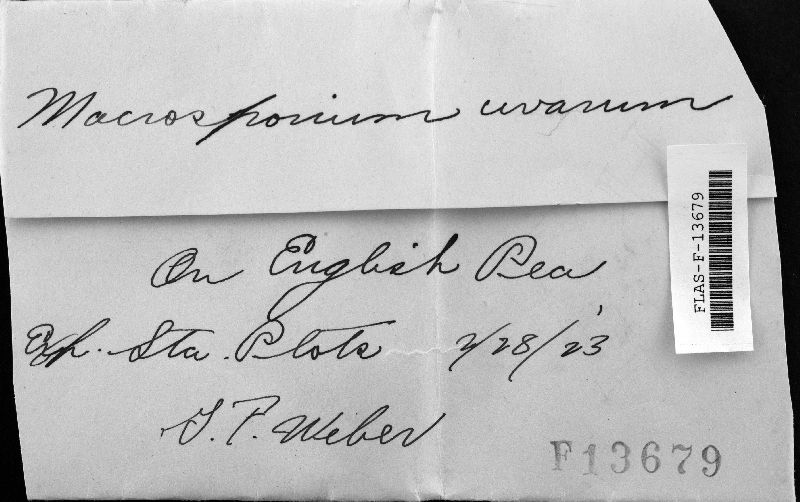 Macrosporium uvarum
On English Pea
Exp. Sta. Plots 2/28/'23
G. F. Weber
F13679
FLAS-F-13679